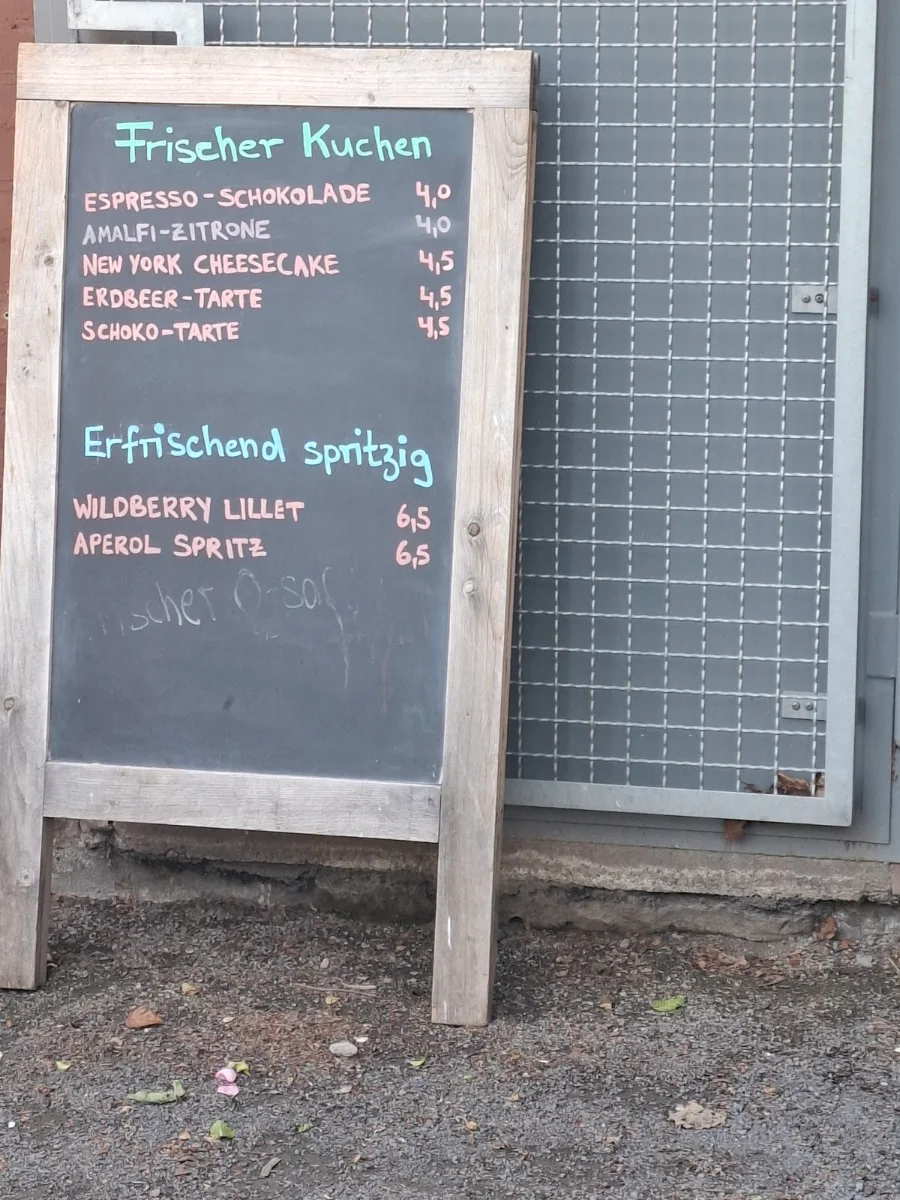 Frischer Kuchen
ESPRESSO-SCHOKOLADE 4,0
AMALFI-ZITRONE 4,0
NEW YORK CHEESECAKE 4,5
ERDBEER-TARTE 4,5
SCHOKO-TARTE 4,5
Erfrischend spritzig
WILDBERRY LILLET 6,5
APEROL SPRITZ 6,5